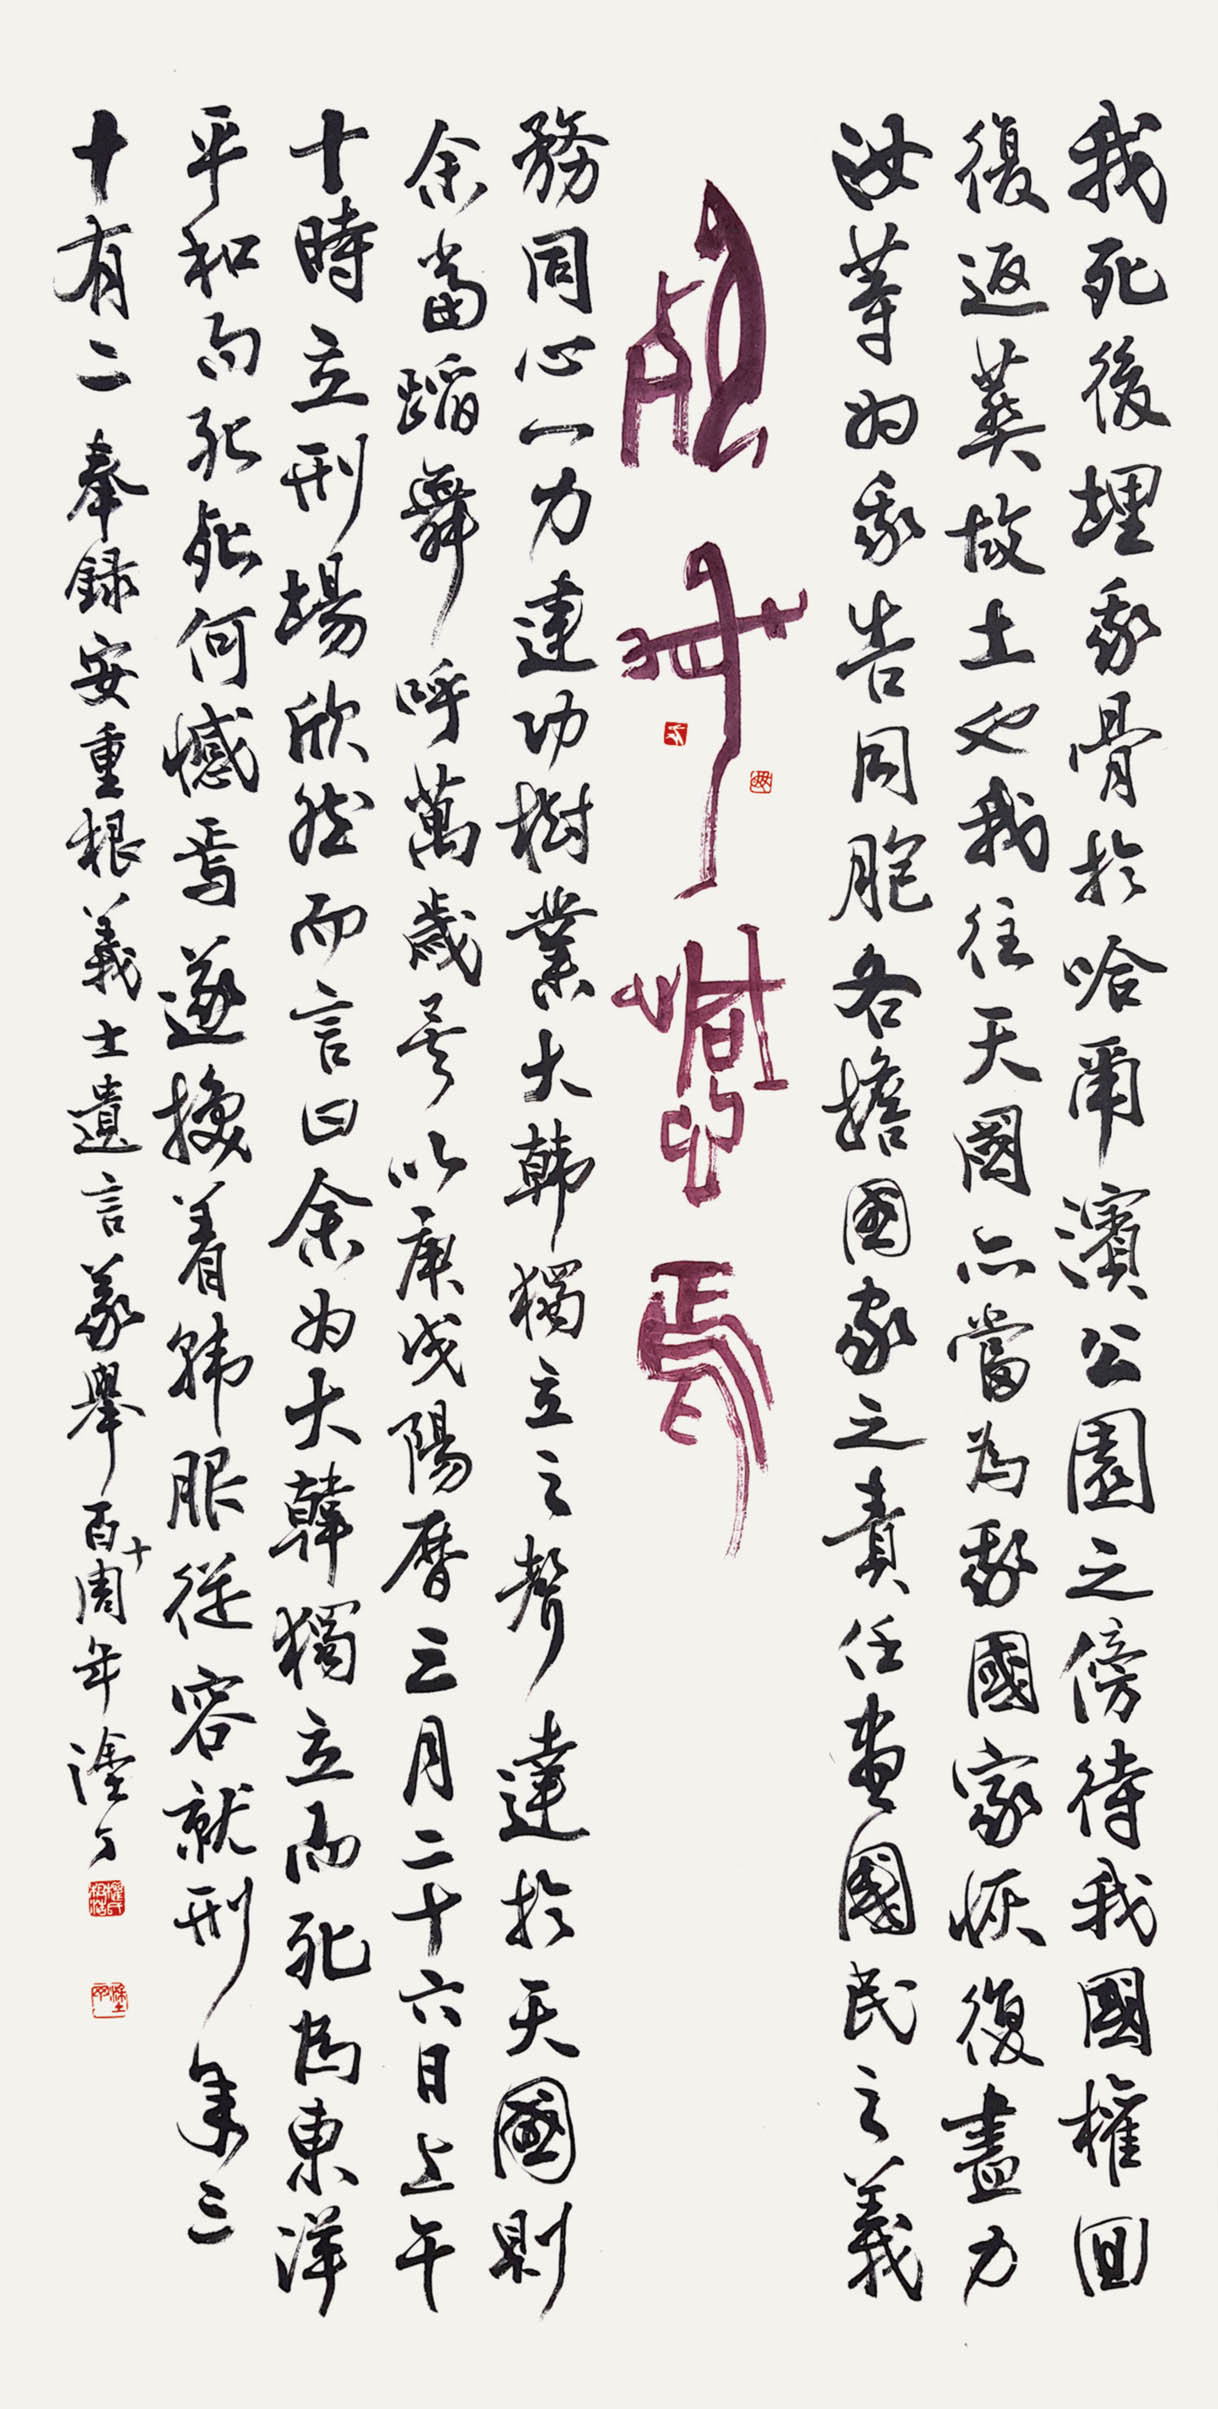 我死後埋我骨於哈爾濱公園之傍待我國權回
復返葬故土也我往天國亦當為我國家恢復盡力
汝等為我告同胞各擔國家之責任盡國民之義
死何憾焉
務同心一力達功樹業大韓獨立之聲達於天國則
余當蹈舞呼萬歲矣以庚戌陽曆三月二十六日上午
十時立刑場欣然而言曰余為大韓獨立而死為東洋
平和而死死何憾焉遂換着韓服從容就刑年三
十有二 奉錄安重根義士遺言義舉百十周年塗丁